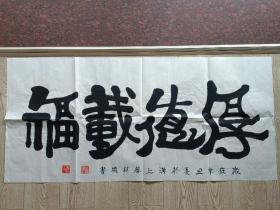 厚德載福
歲在辛丑夏於滬上